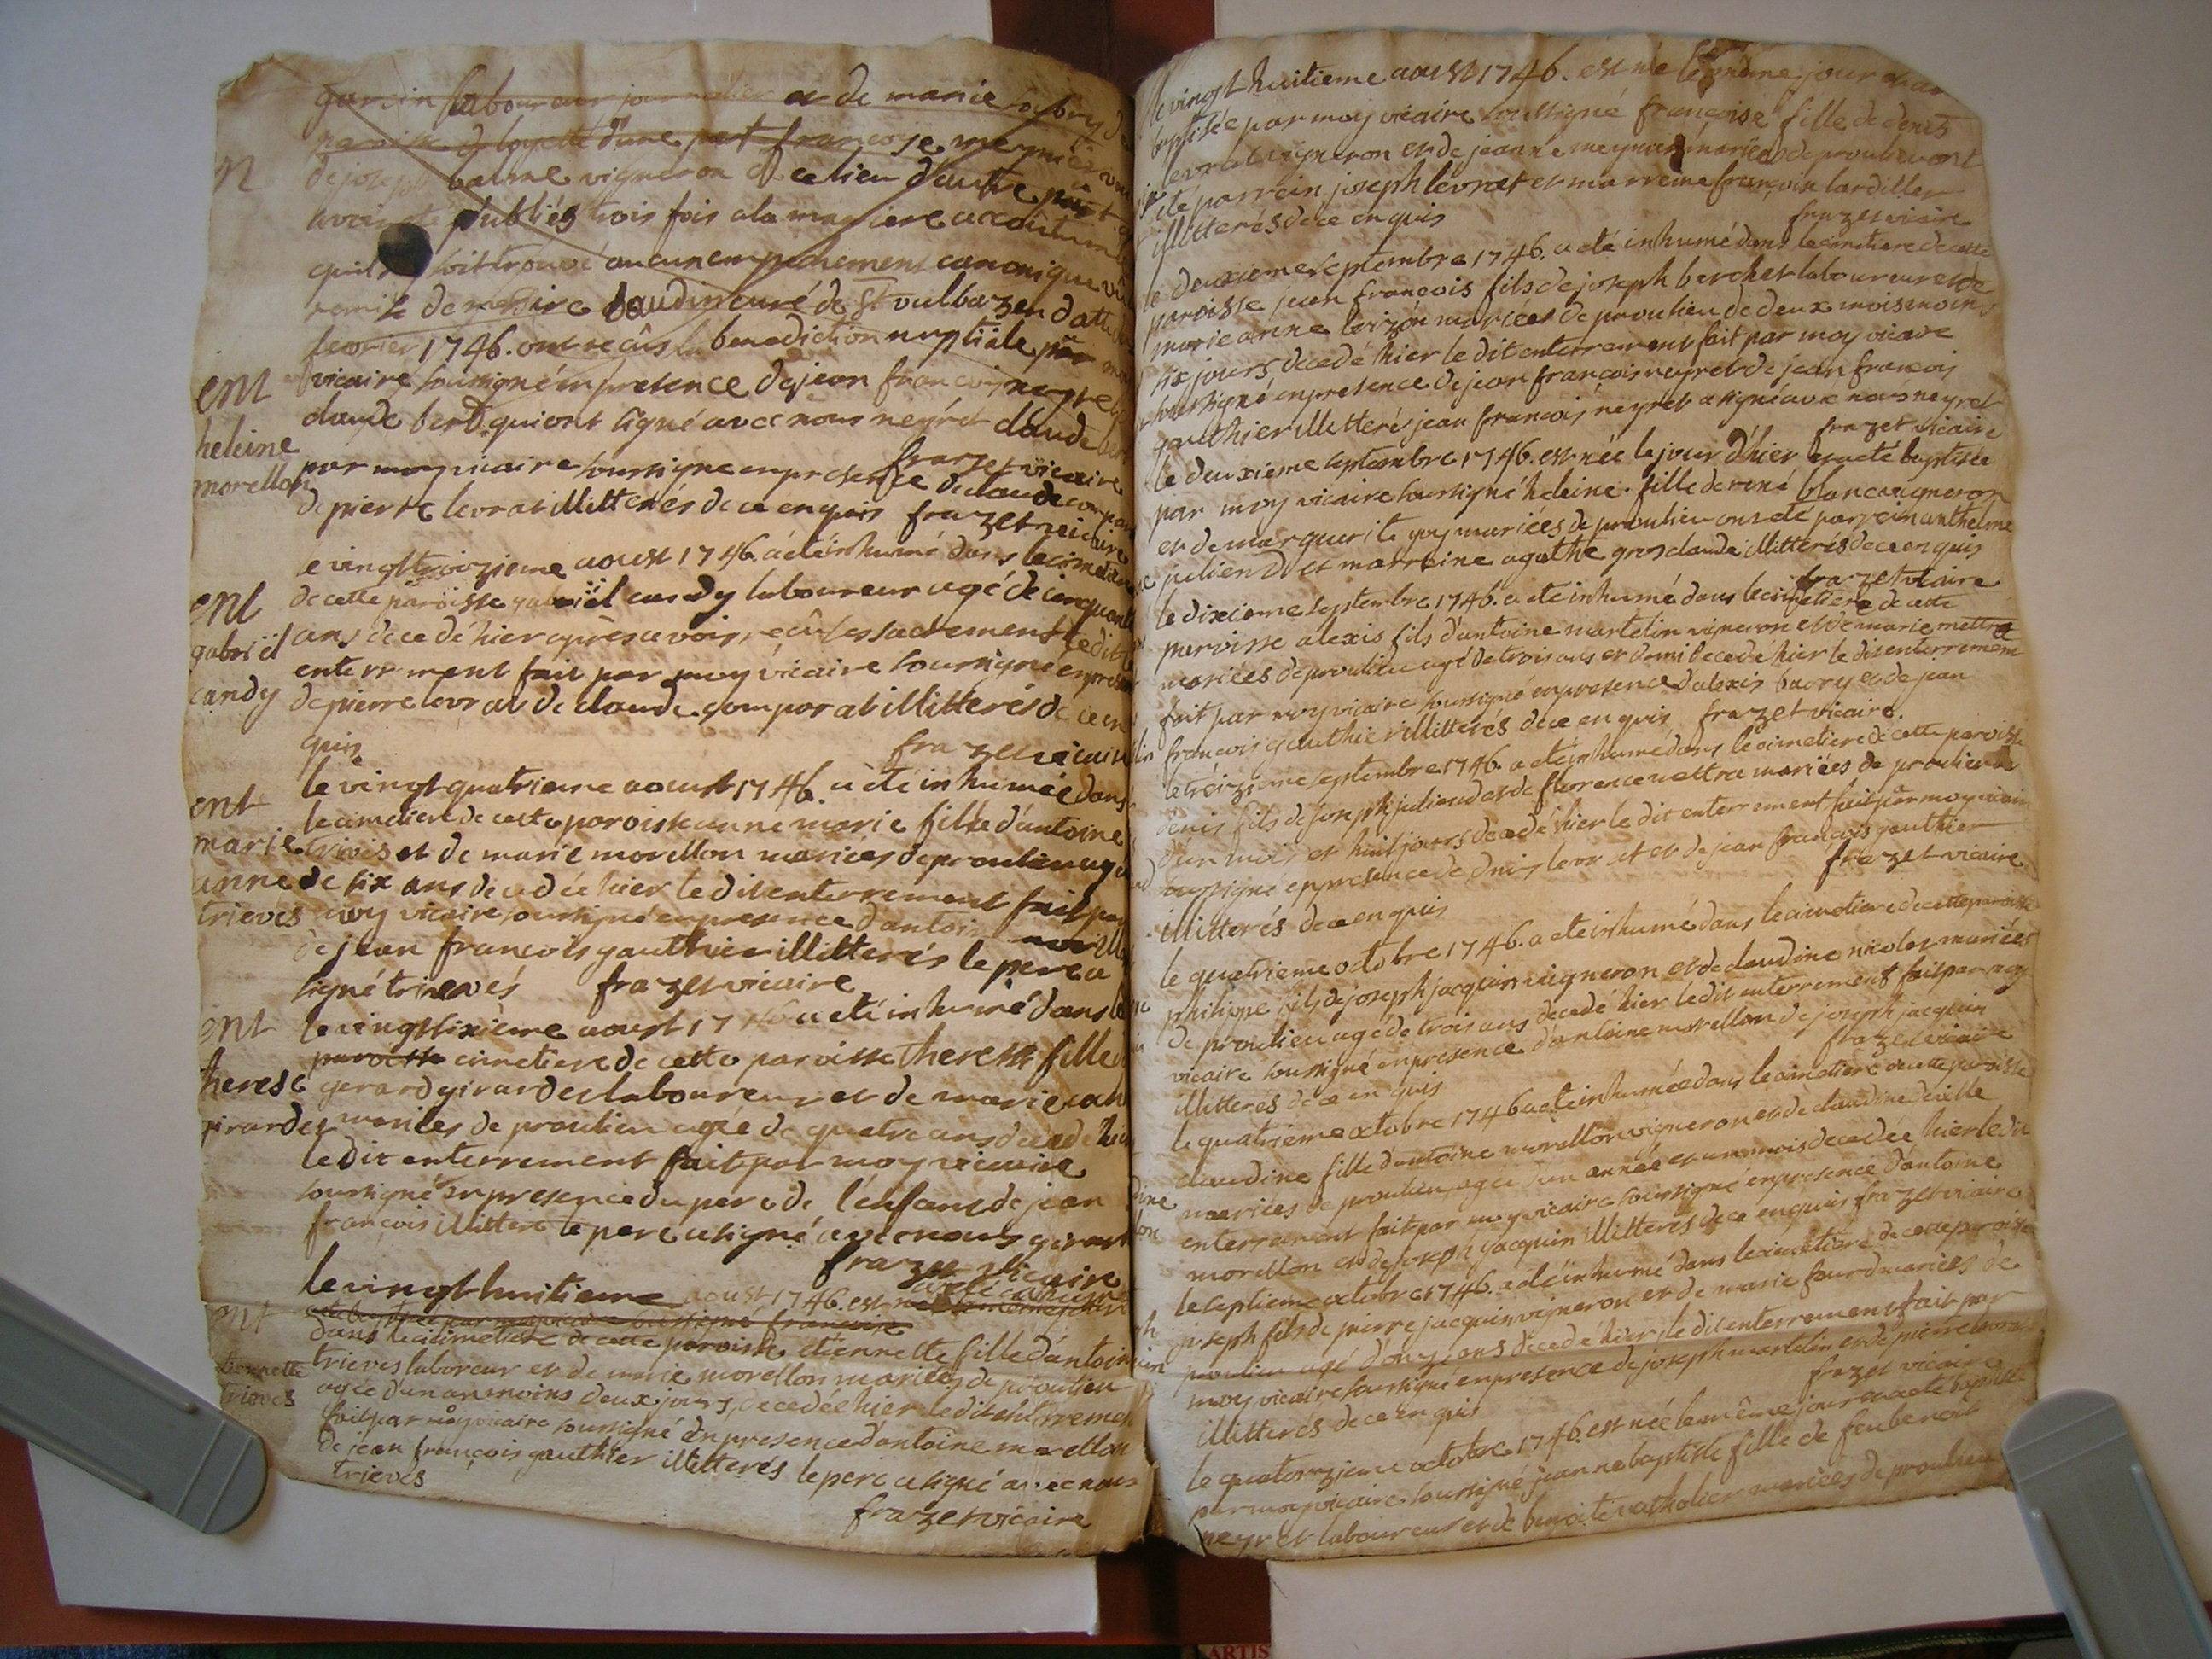 garcin laboureur journalier et de marie
paroisse de loyette d'une part françoise meyniere
n
de joseph balme vigneron de ce lieu d'autre part
avoir été publiés trois fois a la maniere accoutum
quil soit trouvé aucun empechement canonique
remise de messire baudin curé de st vulbaz en datte
fevrier 1746. ont reçûs la benediction nuptiale par
vicaire soussigné en presence de jean françois neyret
claude bert qui ont signé avec nous neyret claude ber
frazet vicaire
ent
heleine
morellon
par moy vicaire soussigne en presence de claude compara
de pierre levrat illitterés de ce enquis frazet vicaire
e vingt troizieme aoust 1746. a été inhumé dans le cimetiere
ent
gabriël
candy
de cette paroisse gabriël candy laboureur agé de cinquante
ans decedé hier après avoir reçû les sacrements le dit
enterrement fait par moy vicaire soussigné en presen
de pierre levrat de claude comparat illitterés de ce en
quis
frazet vicaire
ent
marie
anne
trieves
le vingt quatrieme aoust 1746. a été inhumée dans
le cimetiere de cette paroisse anne marie fille d'antoine
trieves et de marie morellon mariées de proulieu agé
de six ans decedée hier le dit enterrement fait par
moy vicaire soussigné en presence d'antoine morello
de jean françois gauthier illitterés le pere a
signé trieves frazet vicaire
ent
therese
girardet
le vingt sixième aoust 1746 a été inhumé dans le
paroisse cimetiere de cette paroisse therese fille
gerard girardet laboureur et de marie can
mariées de proulieu agée de quatre ans decedée hier
le dit enterrement fait par moy vicaire
soussigné en presence du pere de l'enfant de jean
françois illitteré le pere a signé avec nous girard
frazet vicaire
ent
etiennette
trieves
le vingt huitieme aoust 1746. est née le même jour
a été inhumée
et a été baptisée par moy vicaire soussigné françoise
dans le cimetiere de cette paroisse etiennette fille d'antoin
trieves laboreur et de marie morellon mariées de proulieu
agée d'un an moins deux jours, decedée hier le dit enterremen
fait par moy vicaire soussigné en presence d'antoine morellon
de jean françois gauthier illitterés le pere a signé avec nous
trieves
frazet vicaire
le vingt huitieme aoust 1746. est née le même jour et a
baptisée par moy vicaire soussigné françoise fille de denis
levrat vigneron et de jeanne meynard mariées de proulieu ont
été parrein joseph levrat et marreine françoise lardillier
illitterés de ce enquis
frazet vicaire
le deuxieme septembre 1746. a été inhumé dans le cimetiere de cette
paroisse jean françois fils de joseph berchet laboureur et de
marie anne loizon mariées de proulieu de deux mois moins
six jours decedé hier le dit enterrement fait par moy vicaire
soussigné en presence de jean françois neyret de jean françois
gauthier illitteré jean françois neyret a signé avec nous neyret
frazet vicaire
le deuxieme septembre 1746. est née le jour d'hier et a été baptisée
par moy vicaire soussigné heleine fille de rené blanc vigneron
et de marguerite guy mariées de proulieu ont été parrein anthelme
juliend et marreine agathe gros claude illitterés de ce enquis
frazet vicaire
le dixieme septembre 1746. a été inhumé dans le cimetiere de cette
paroisse alexis fils d'antoine martelin vigneron et de marie mettra
mariées de proulieu agé de trois ans et demi decedé hier le dit enterrement
fait par moy vicaire soussigné en presence d'alexis bavry et de jean
françois gauthier illitterés de ce enquis frazet vicaire.
le treizieme septembre 1746. a été inhumé dans le cimetiere de cette paroisse
denis fils de joseph juliend et de florence mettra mariées de proulieu
d'un mois et huit jours decedé hier le dit enterrement fait par moy vicair
soussigné en presence de denis levrat et de jean françois gauthier
illitterés de ce enquis
frazet vicaire
le quatrieme octobre 1746. a été inhumé dans le cimetiere de cette paroisse
philippe fils de joseph jacquin vigneron et de claudine nicolet mariées
de proulieu agé de trois ans decedé hier le dit enterrement fait par moy
vicaire soussigné en presence d'antoine morellon de joseph jacquin
illitterés de ce enquis
frazet vicaire
le quatrieme octobre 1746 a été inhumée dans le cimetiere de cette paroisse
claudine fille d'antoine morellon vigneron et de claudine deville
mariées de proulieu agée d'un année et un mois decedée hier le dit
enterrement fait par moy vicaire soussigné en presence d'antoine
morellon et de joseph jacquin illitterés de ce enquis frazet vicaire
le septieme octobre 1746. a été inhumé dans le cimetiere de cette paroisse
joseph fils de pierre jacquin vigneron et de marie fourd mariées de
proulieu agé d'onze ans decedé hier, le dit enterrement fait par
moy vicaire soussigné en presence de joseph martelin et de pierre
illitterés de ce enquis
frazet vicaire
le quatorzieme octobre 1746. est née le même jour et a été baptisée
par moy vicaire soussigné jeanne baptiste fille de feu benoit
neyret laboureur et de benoite vatholier mariées de proulieu